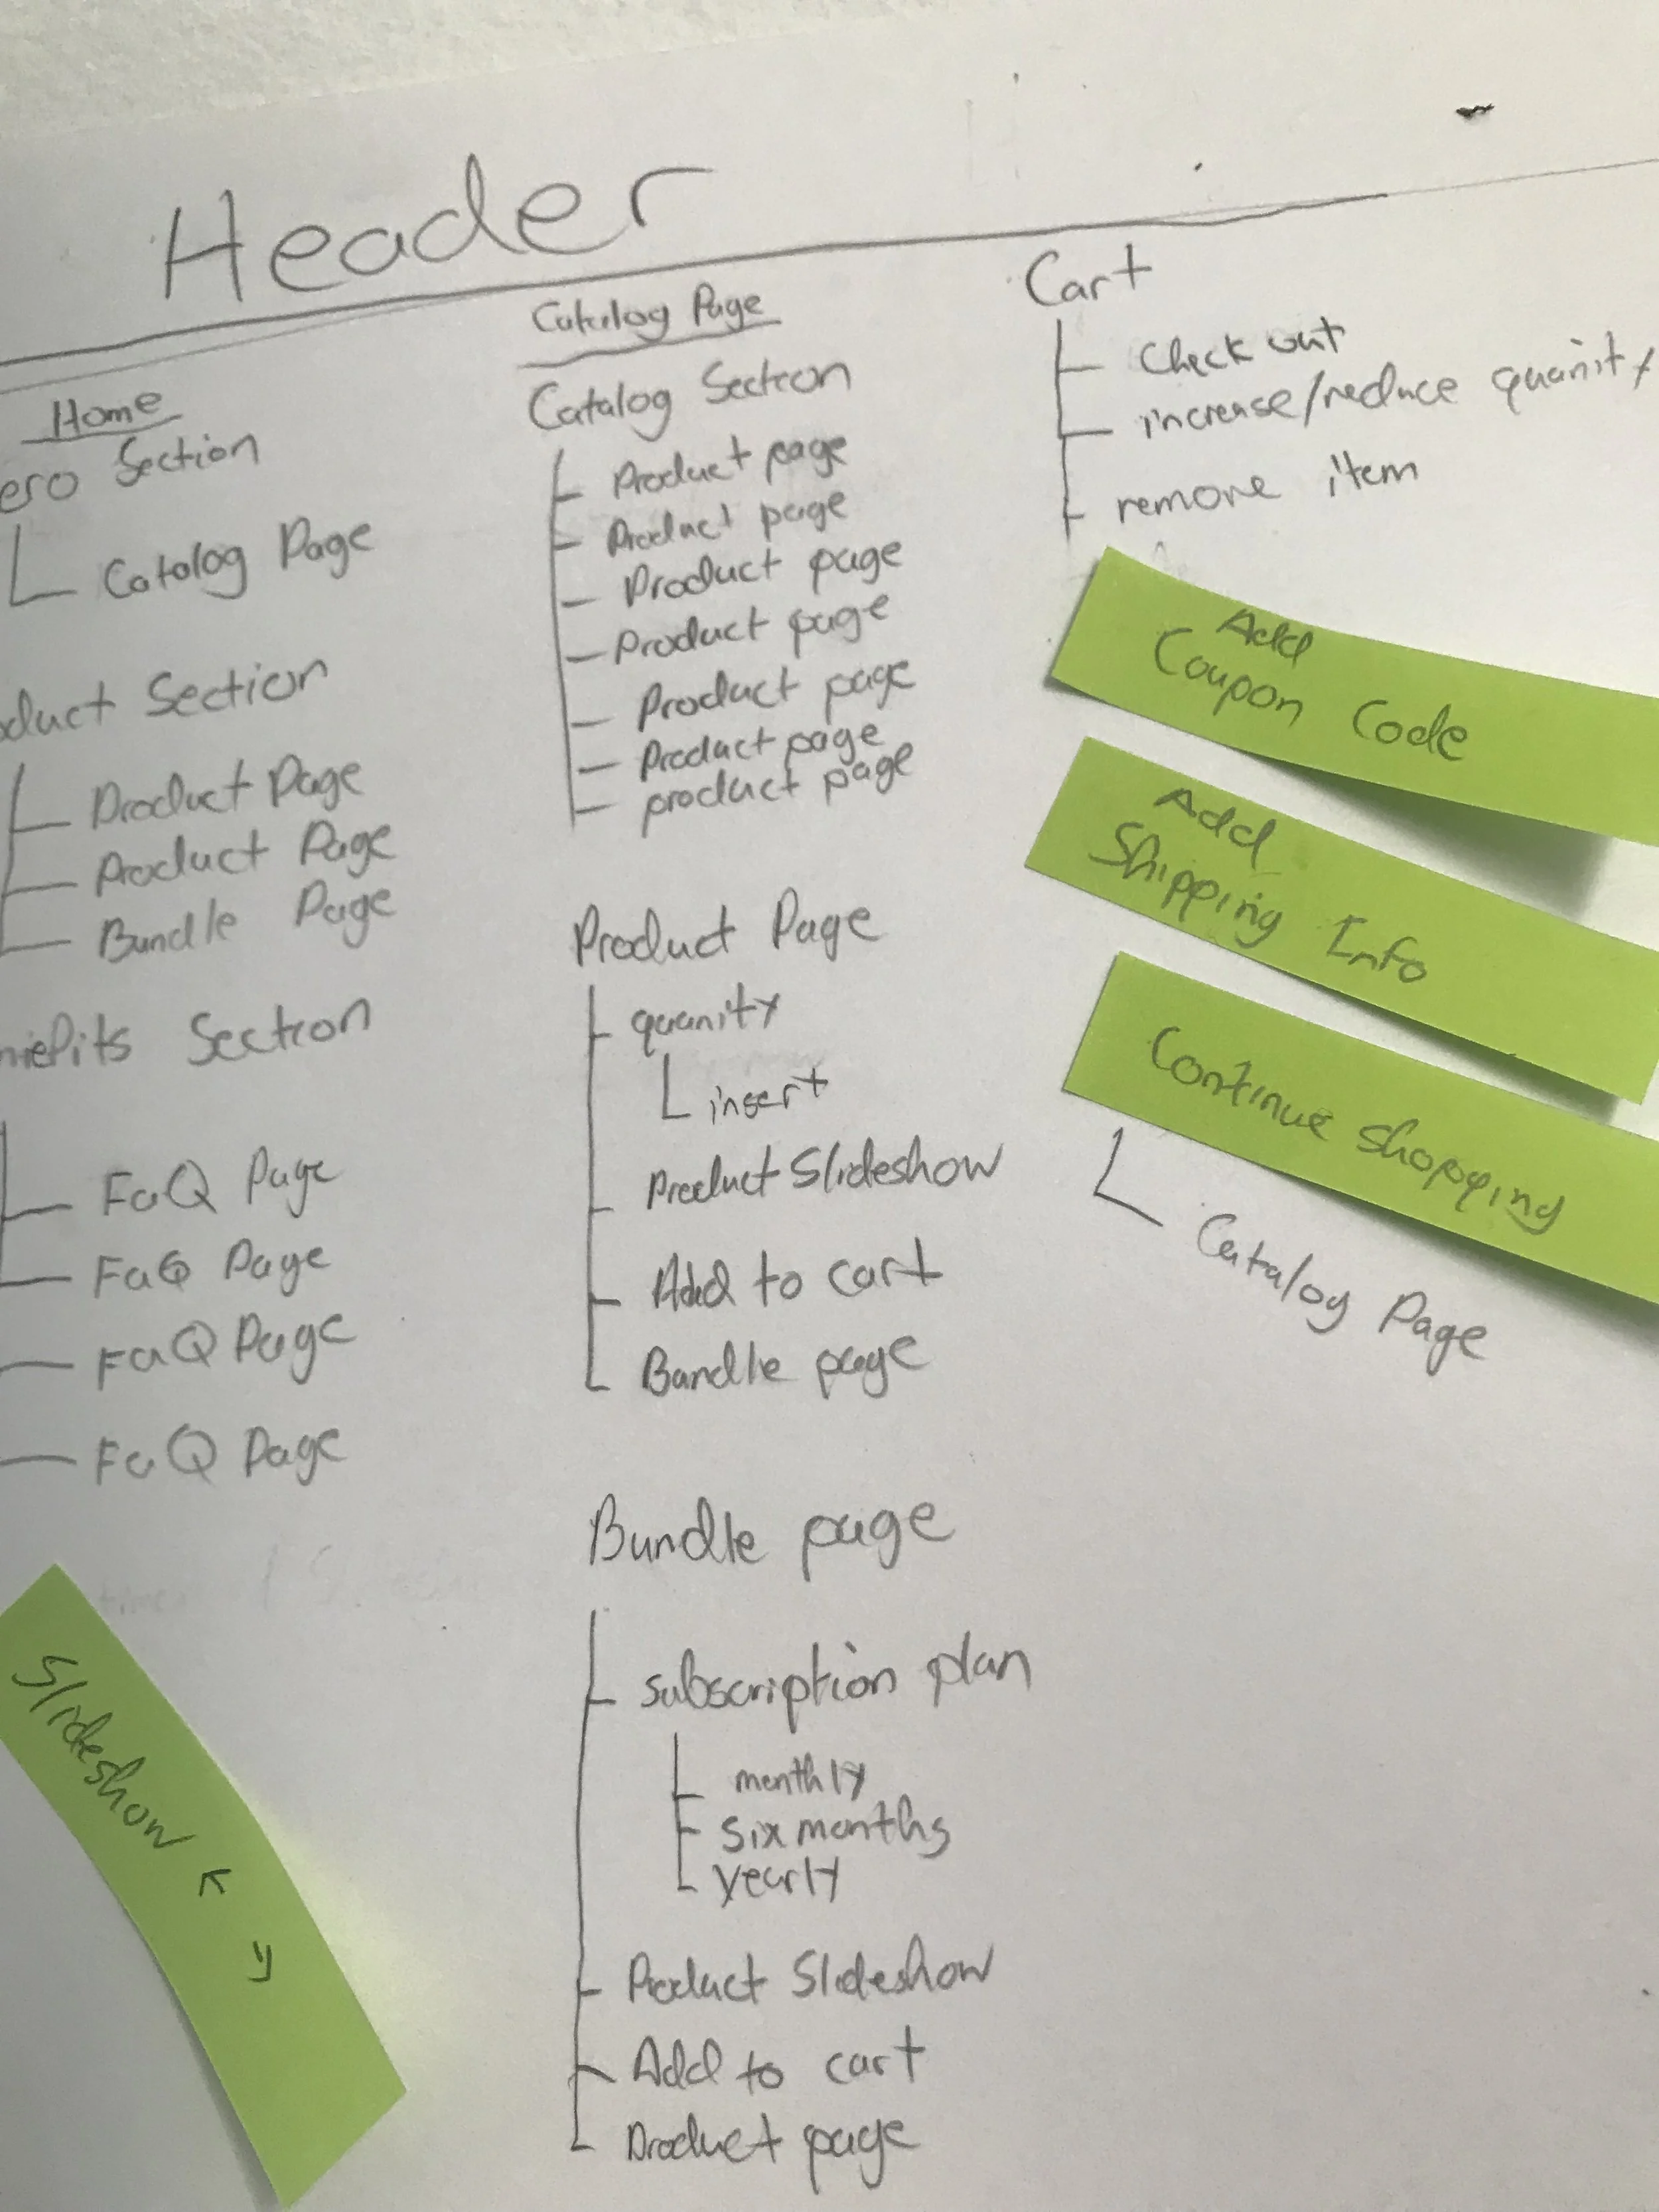 Header
Home
ero Section
Catalog Page
oduct Section
Product Page
Product Page
Bundle Page
Section
FaQ Page
FaQ Page
FaQ Page
FaQ Page
Slideshow
Catalog Page
Catalog Section
Product page
Product page
Product page
Product page
Product page
Product page
product page
Product Page
quanity
insert
Product Slideshow
Add to cart
Bundle page
Bundle page
subscription plan
monthly
six months
yearly
Product Slideshow
Add to cart
Product page
Cart
Check out
increase/reduce quanity
remove item
Add
Coupon Code
Add
Shipping Info
Continue Shopping
Catalog Page